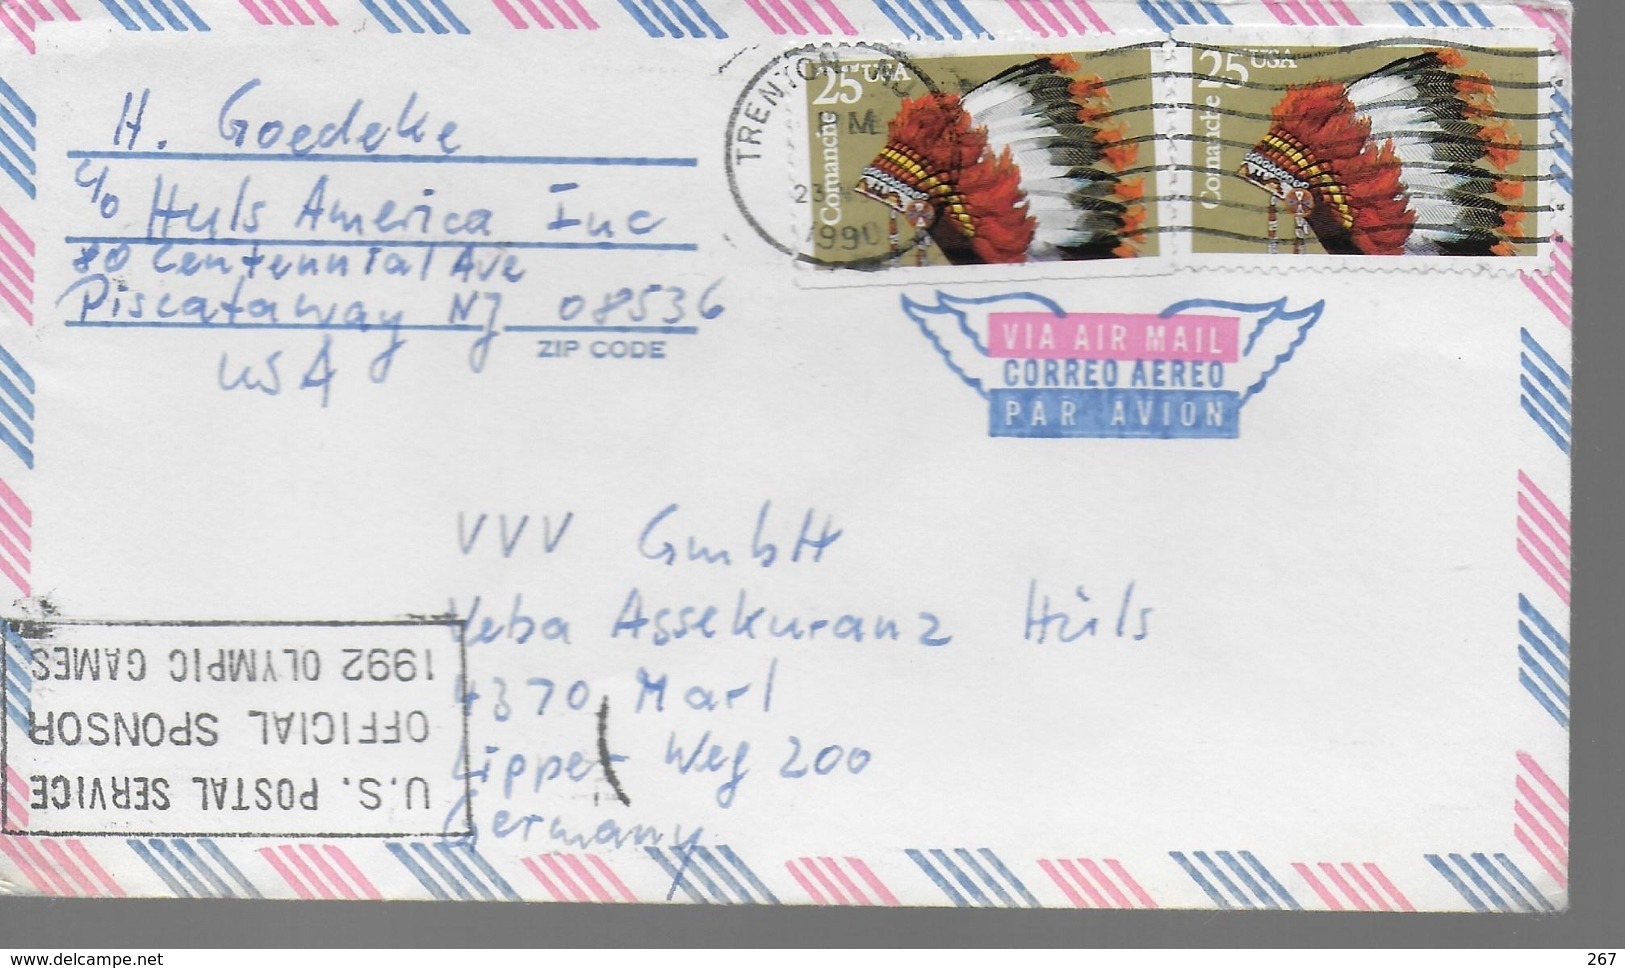 H. Goedeke
c/o Huls America Inc
80 Centennial Ave
Piscataway NJ 08536
ZIP CODE
USA
TRENTON NJ
PM
23
1990
25 USA
Comanche
25 USA
Comanche
VIA AIR MAIL
CORREO AEREO
PAR AVION
VVV GmbH
Veba Assekuranz Hüls
4370 Marl
Lipper Weg 200
Germany
U.S. POSTAL SERVICE
OFFICIAL SPONSOR
1992 OLYMPIC GAMES
www.delcampe.net
267